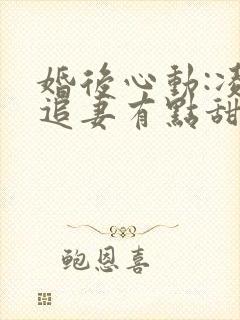 婚後心動:凌
追妻有點甜
鮑恩喜